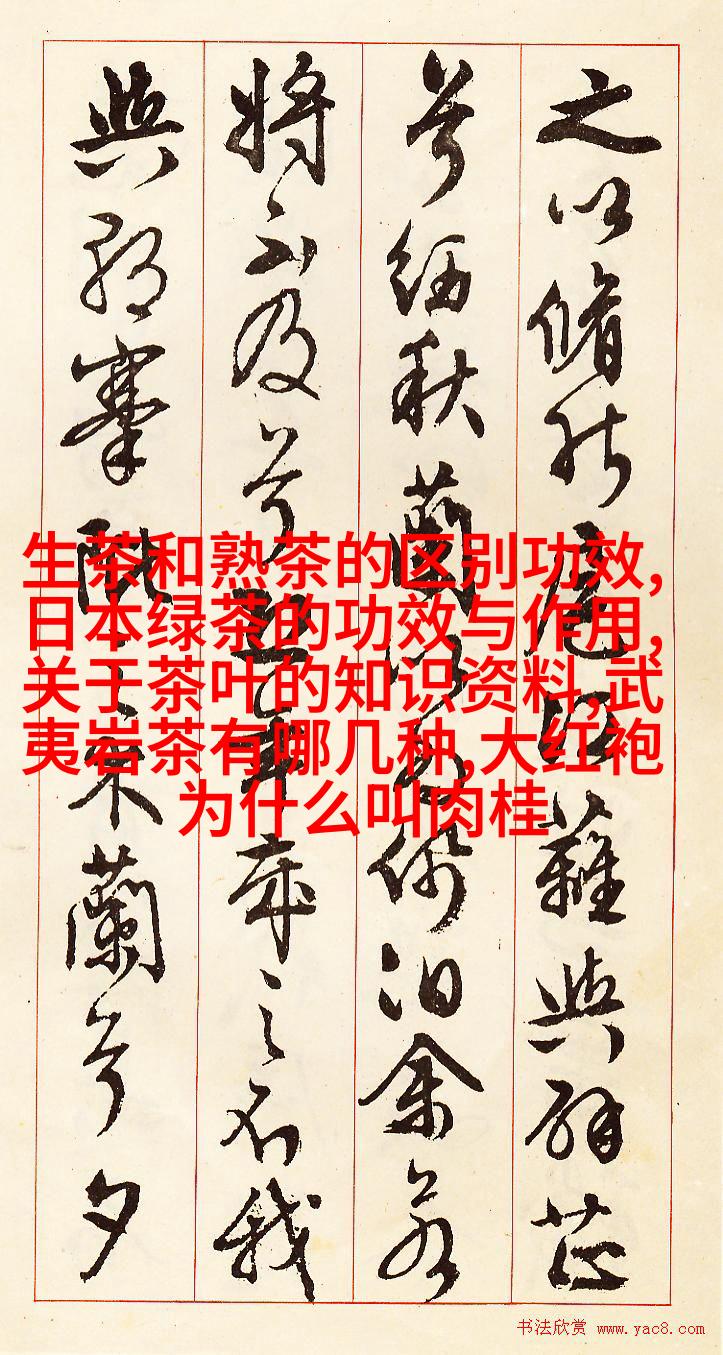 之以脩能扈江蘺與辟芷
兮紉秋蘭以為佩汩余若
將不及兮恐年歲之不我
與朝搴阰之木蘭兮夕
生茶和熟茶的区别功效,
日本绿茶的功效与作用,
关于茶叶的知识资料,武
夷岩茶有哪几种,大红袍
为什么叫肉桂
书法欣赏 www.yac8.com